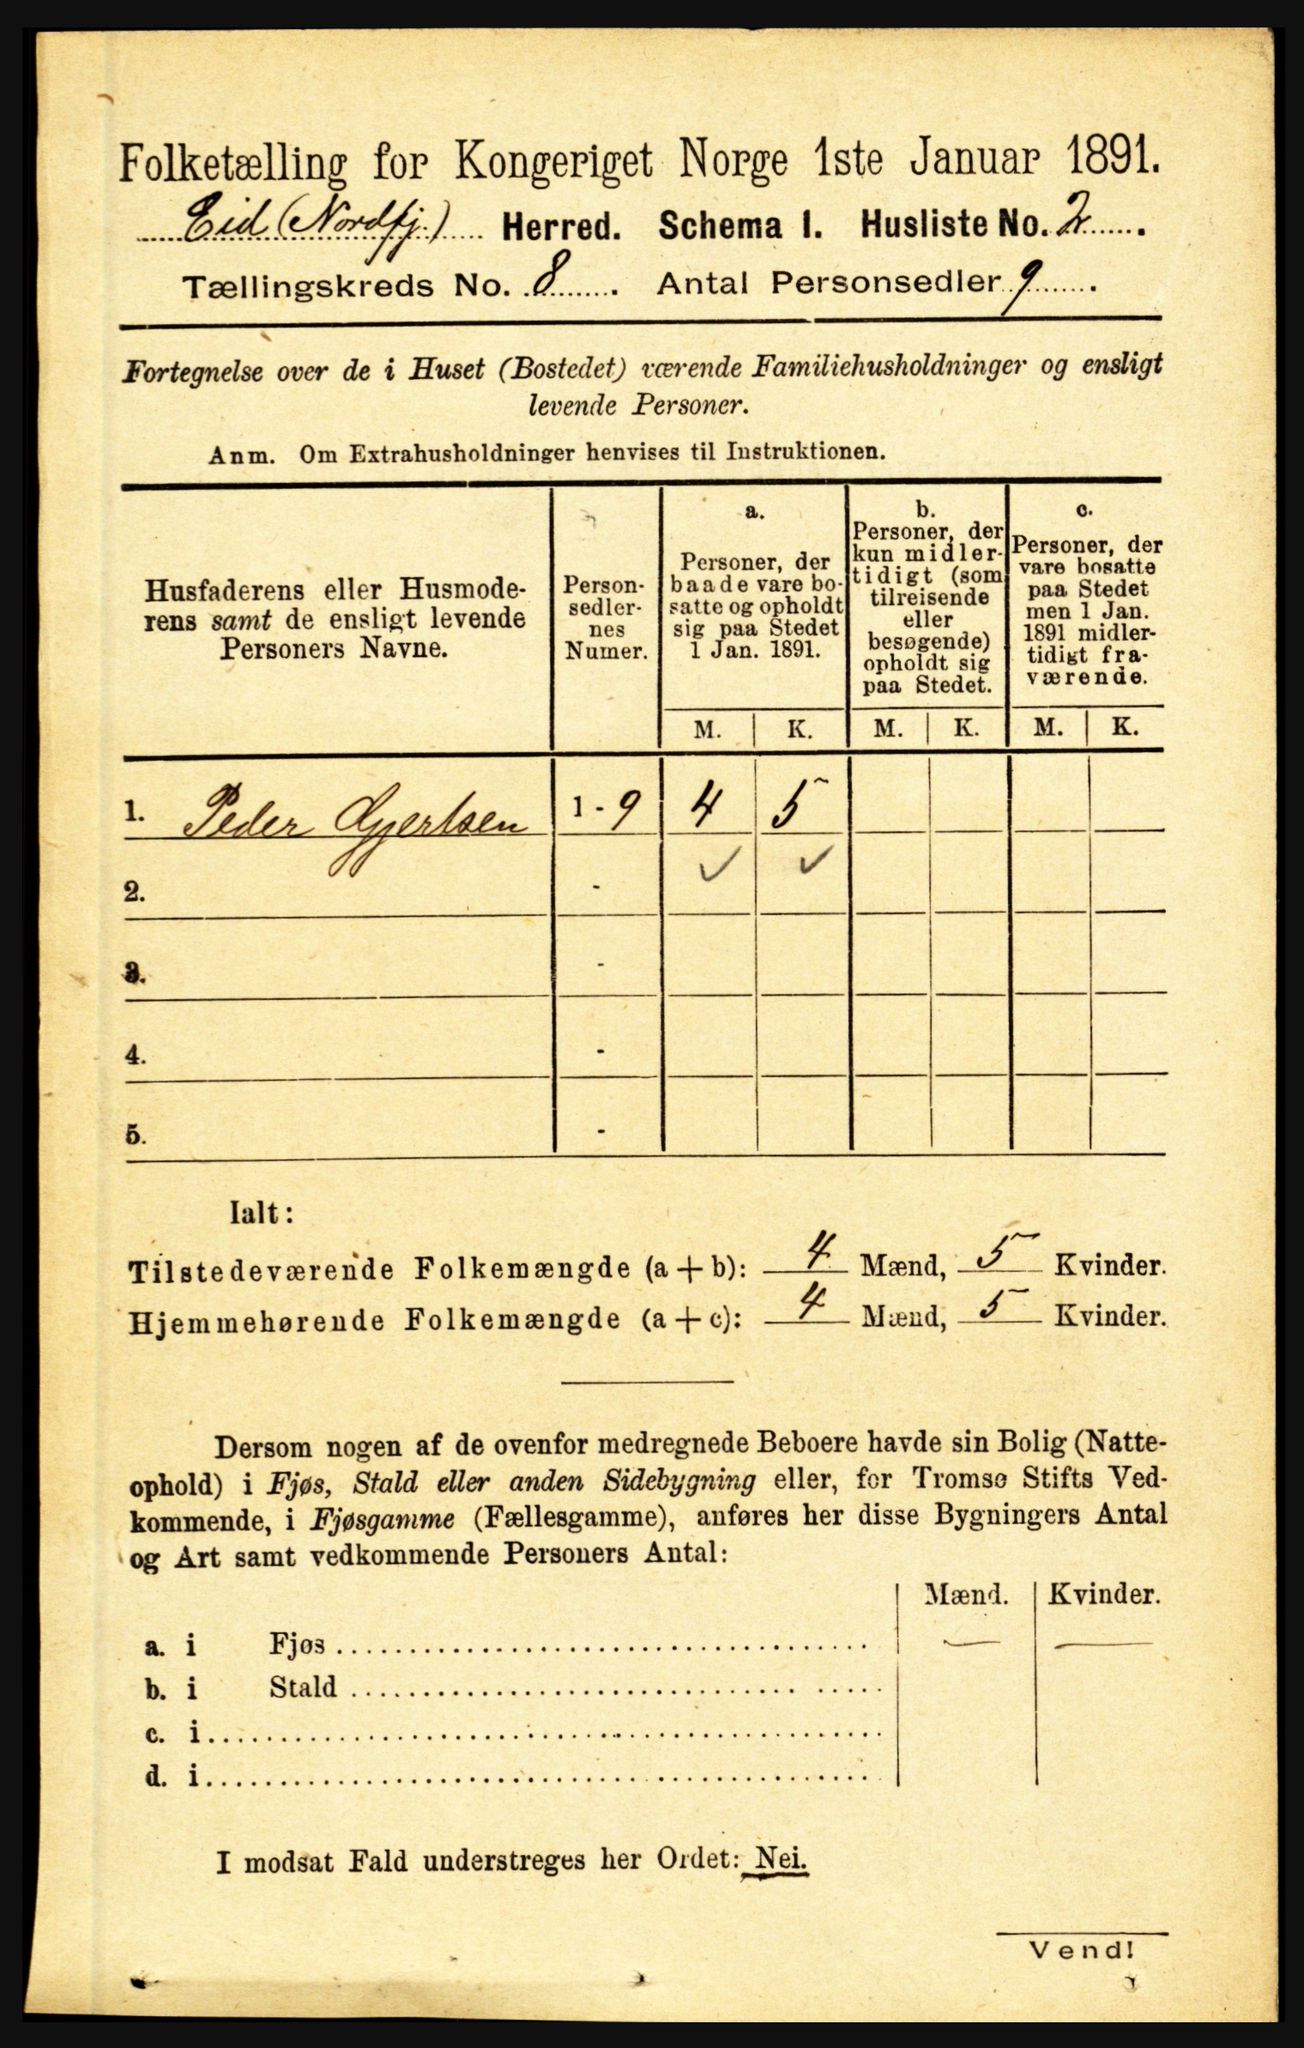 Folketælling for Kongeriget Norge 1ste Januar 1891.
Eid (Nordfj.) Herred. Schema 1. Husliste No. 2.
Tællingskreds No. 8. Antal Personsedler 9.
Fortegnelse over de i Huset (Bostedet) værende Familiehusholdninger og ensligt
levende Personer.
Anm. Om Extrahusholdninger henvises til Instruktionen.
Husfaderens eller Husmode-
rens samt de ensligt levende
Personers Navne.
Person-
sedler-
nes
Numer.
a.
Personer, der
baade vare bo-
satte og opholdt
sig paa Stedet
1 Jan. 1891.
b.
Personer, der
kun midler-
tidigt (som
tilreisende
eller
besøgende)
opholdt sig
paa Stedet.
c.
Personer, der
vare bosatte
paa Stedet
men 1 Jan.
1891 midler-
tidigt fra-
værende.
M. K. M. K. M. K.
1. Peder Gjertsen 1 - 9 4 5
2. -
3. -
4. -
5. -
Ialt:
Tilstedeværende Folkemængde (a + b): 4 Mænd, 5 Kvinder.
Hjemmehørende Folkemængde (a + c): 4 Mænd, 5 Kvinder.
Dersom nogen af de ovenfor medregnede Beboere havde sin Bolig (Natte-
ophold) i Fjøs, Stald eller anden Sidebygning eller, for Tromsø Stifts Ved-
kommende, i Fjøsgamme (Fællesgamme), anføres her disse Bygningers Antal
og Art samt vedkommende Personers Antal:
Mænd. Kvinder.
a. i Fjøs
b. i Stald
c. i
d. i
I modsat Fald understreges her Ordet: Nei.
Vend!